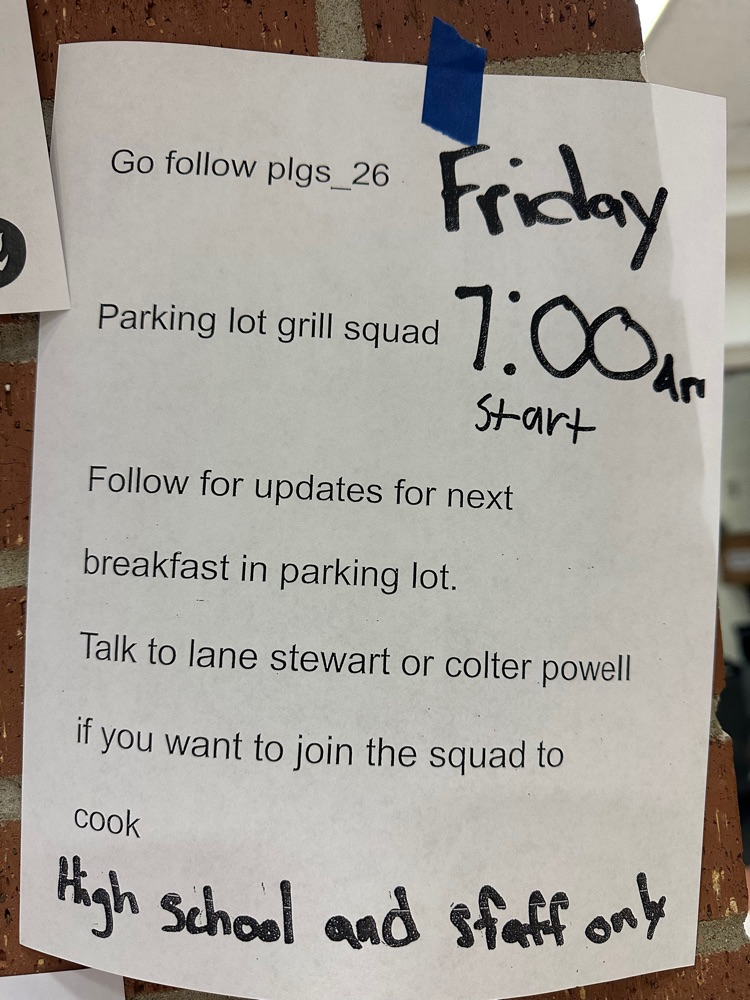 Go follow plgs_26
Friday
Parking lot grill squad
7:00 Am
Start
Follow for updates for next
breakfast in parking lot.
Talk to lane stewart or colter powell
if you want to join the squad to
cook
High School and staff only